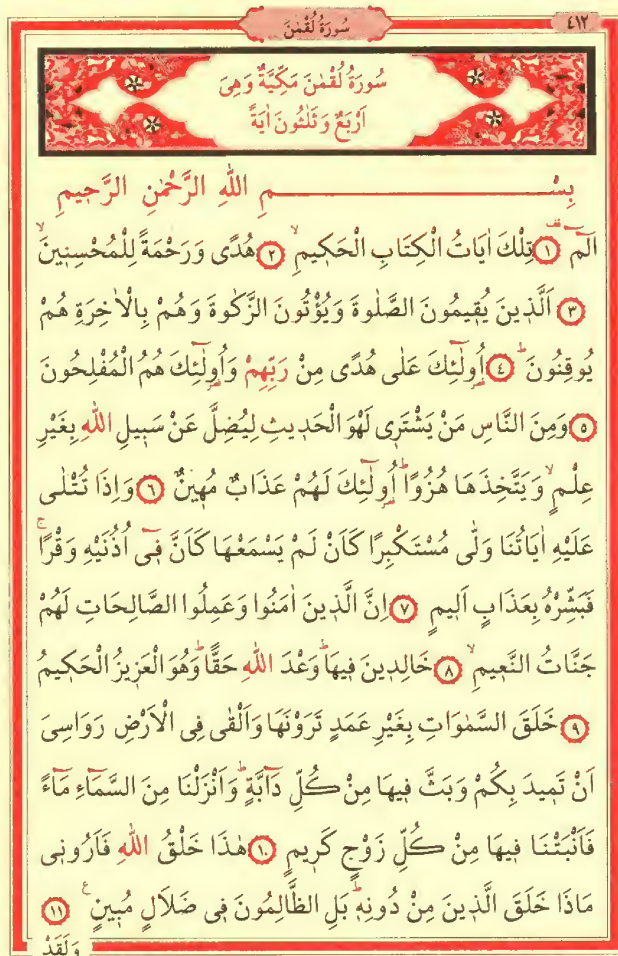 ٤١٢
سُورَةُ لُقْمٰنَ
سُورَةُ لُقْمٰنَ مَكِّيَّةٌ وَهِىَ
اَرْبَعٌ وَثَلٰثُونَ اٰيَةً
بِسْمِ اللّٰهِ الرَّحْمٰنِ الرَّحٖيمِ
الٓمٓ ۚ ﴿١﴾ تِلْكَ اٰيَاتُ الْكِتَابِ الْحَكٖيمِۙ ﴿٢﴾ هُدًى وَرَحْمَةً لِلْمُحْسِنٖينَۙ
﴿٣﴾ اَلَّذٖينَ يُقٖيمُونَ الصَّلٰوةَ وَيُؤْتُونَ الزَّكٰوةَ وَهُمْ بِالْاٰخِرَةِ هُمْ
يُوقِنُونَۜ ﴿٤﴾ اُو۬لٰٓئِكَ عَلٰى هُدًى مِنْ رَبِّهِمْ وَاُو۬لٰٓئِكَ هُمُ الْمُفْلِحُونَ
﴿٥﴾ وَمِنَ النَّاسِ مَنْ يَشْتَرٖى لَهْوَ الْحَدٖيثِ لِيُضِلَّ عَنْ سَبٖيلِ اللّٰهِ بِغَيْرِ
عِلْمٍۙ وَيَتَّخِذَهَا هُزُوًاۜ اُو۬لٰٓئِكَ لَهُمْ عَذَابٌ مُهٖينٌ ﴿٦﴾ وَاِذَا تُتْلٰى
عَلَيْهِ اٰيَاتُنَا وَلّٰى مُسْتَكْبِرًا كَاَنْ لَمْ يَسْمَعْهَا كَاَنَّ فٖٓى اُذُنَيْهِ وَقْرًاۚ
فَبَشِّرْهُ بِعَذَابٍ اَلٖيمٍ ﴿٧﴾ اِنَّ الَّذٖينَ اٰمَنُوا وَعَمِلُوا الصَّالِحَاتِ لَهُمْ
جَنَّاتُ النَّعٖيمِۙ ﴿٨﴾ خَالِدٖينَ فٖيهَاۜ وَعْدَ اللّٰهِ حَقًّاۜ وَهُوَ الْعَزٖيزُ الْحَكٖيمُ
﴿٩﴾ خَلَقَ السَّمٰوَاتِ بِغَيْرِ عَمَدٍ تَرَوْنَهَا وَاَلْقٰى فِى الْاَرْضِ رَوَاسِىَ
اَنْ تَمٖيدَ بِكُمْ وَبَثَّ فٖيهَا مِنْ كُلِّ دَٓابَّةٍۜ وَاَنْزَلْنَا مِنَ السَّمَٓاءِ مَٓاءً
فَاَنْبَتْنَا فٖيهَا مِنْ كُلِّ زَوْجٍ كَرٖيمٍ ﴿١٠﴾ هٰذَا خَلْقُ اللّٰهِ فَاَرُونٖى
مَاذَا خَلَقَ الَّذٖينَ مِنْ دُونِهٖۜ بَلِ الظَّالِمُونَ فٖى ضَلَالٍ مُبٖينٍ ࣖ ﴿١١﴾
وَلَقَدْ